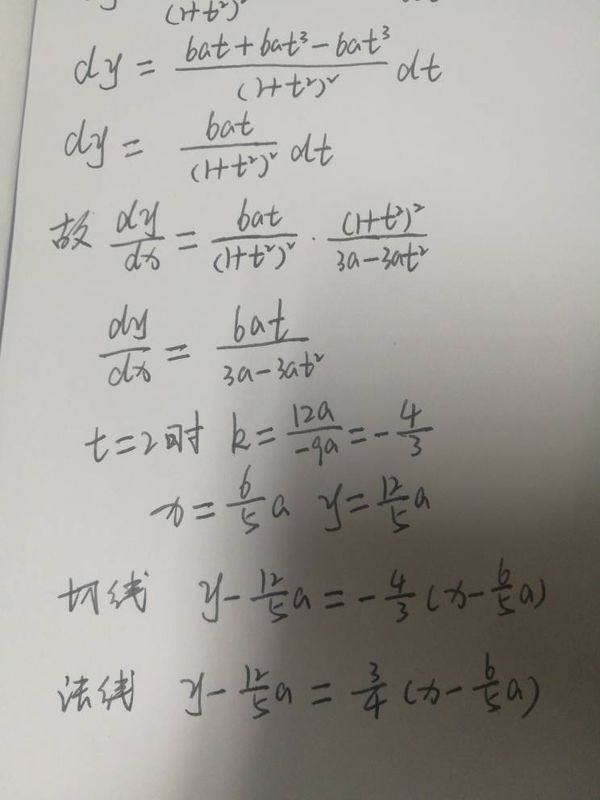 (1+t²)²
dy = \frac{6at+6at³-6at³}{(1+t²)²} dt
dy = \frac{6at}{(1+t²)²} dt
故 \frac{dy}{dx} = \frac{6at}{(1+t²)²} · \frac{(1+t²)²}{3a-3at²}
\frac{dy}{dx} = \frac{6at}{3a-3at²}
t=2时 k=\frac{12a}{-9a}=-\frac{4}{3}
x=\frac{6}{5}a y=\frac{12}{5}a
切线 y-\frac{12}{5}a=-\frac{4}{3}(x-\frac{6}{5}a)
法线 y-\frac{12}{5}a=\frac{3}{4}(x-\frac{6}{5}a)